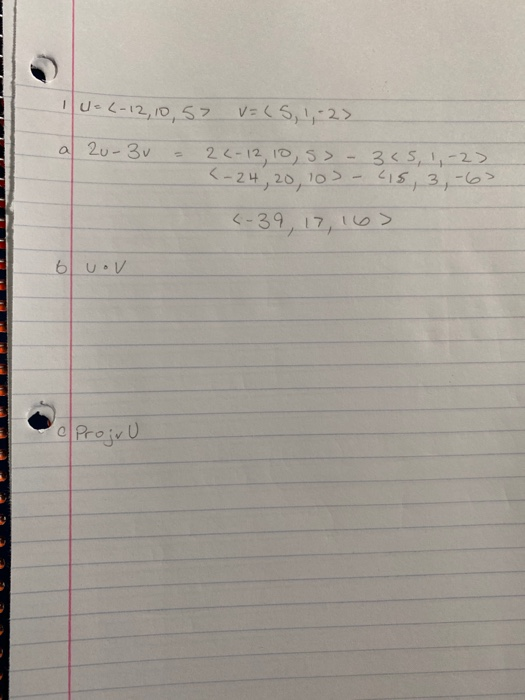 1 U=<-12,10,5> V=<5,1,-2>
a 2U-3V = 2<-12,10,5> - 3<5,1,-2>
<-24,20,10> - <15,3,-6>
<-39,17,16>
b U•V
c ProjvU